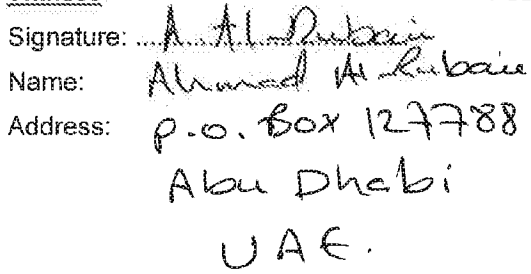 Signature: A Al-Rubaie
Name: Ahmad Al Rubaie
Address: P.O. Box 127788
Abu Dhabi
UAE.